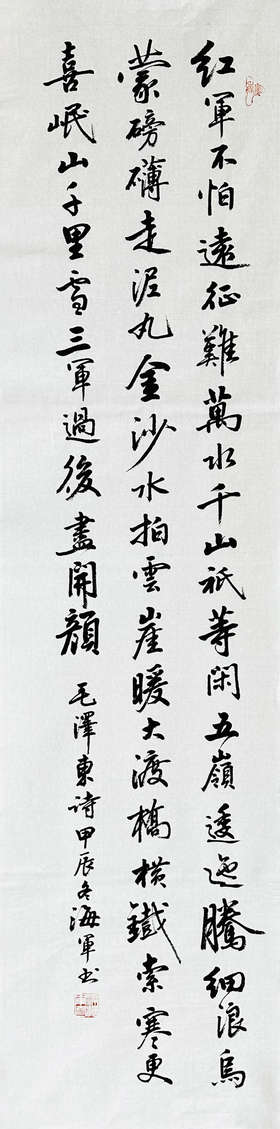 红軍不怕遠征難萬水千山祇等閑五嶺逶迤騰細浪烏
蒙磅礴走泥丸金沙水拍雲崖暖大渡橋横鐵索寒更
喜岷山千里雪三軍過後盡開顔
毛澤東詩甲辰冬海軍书